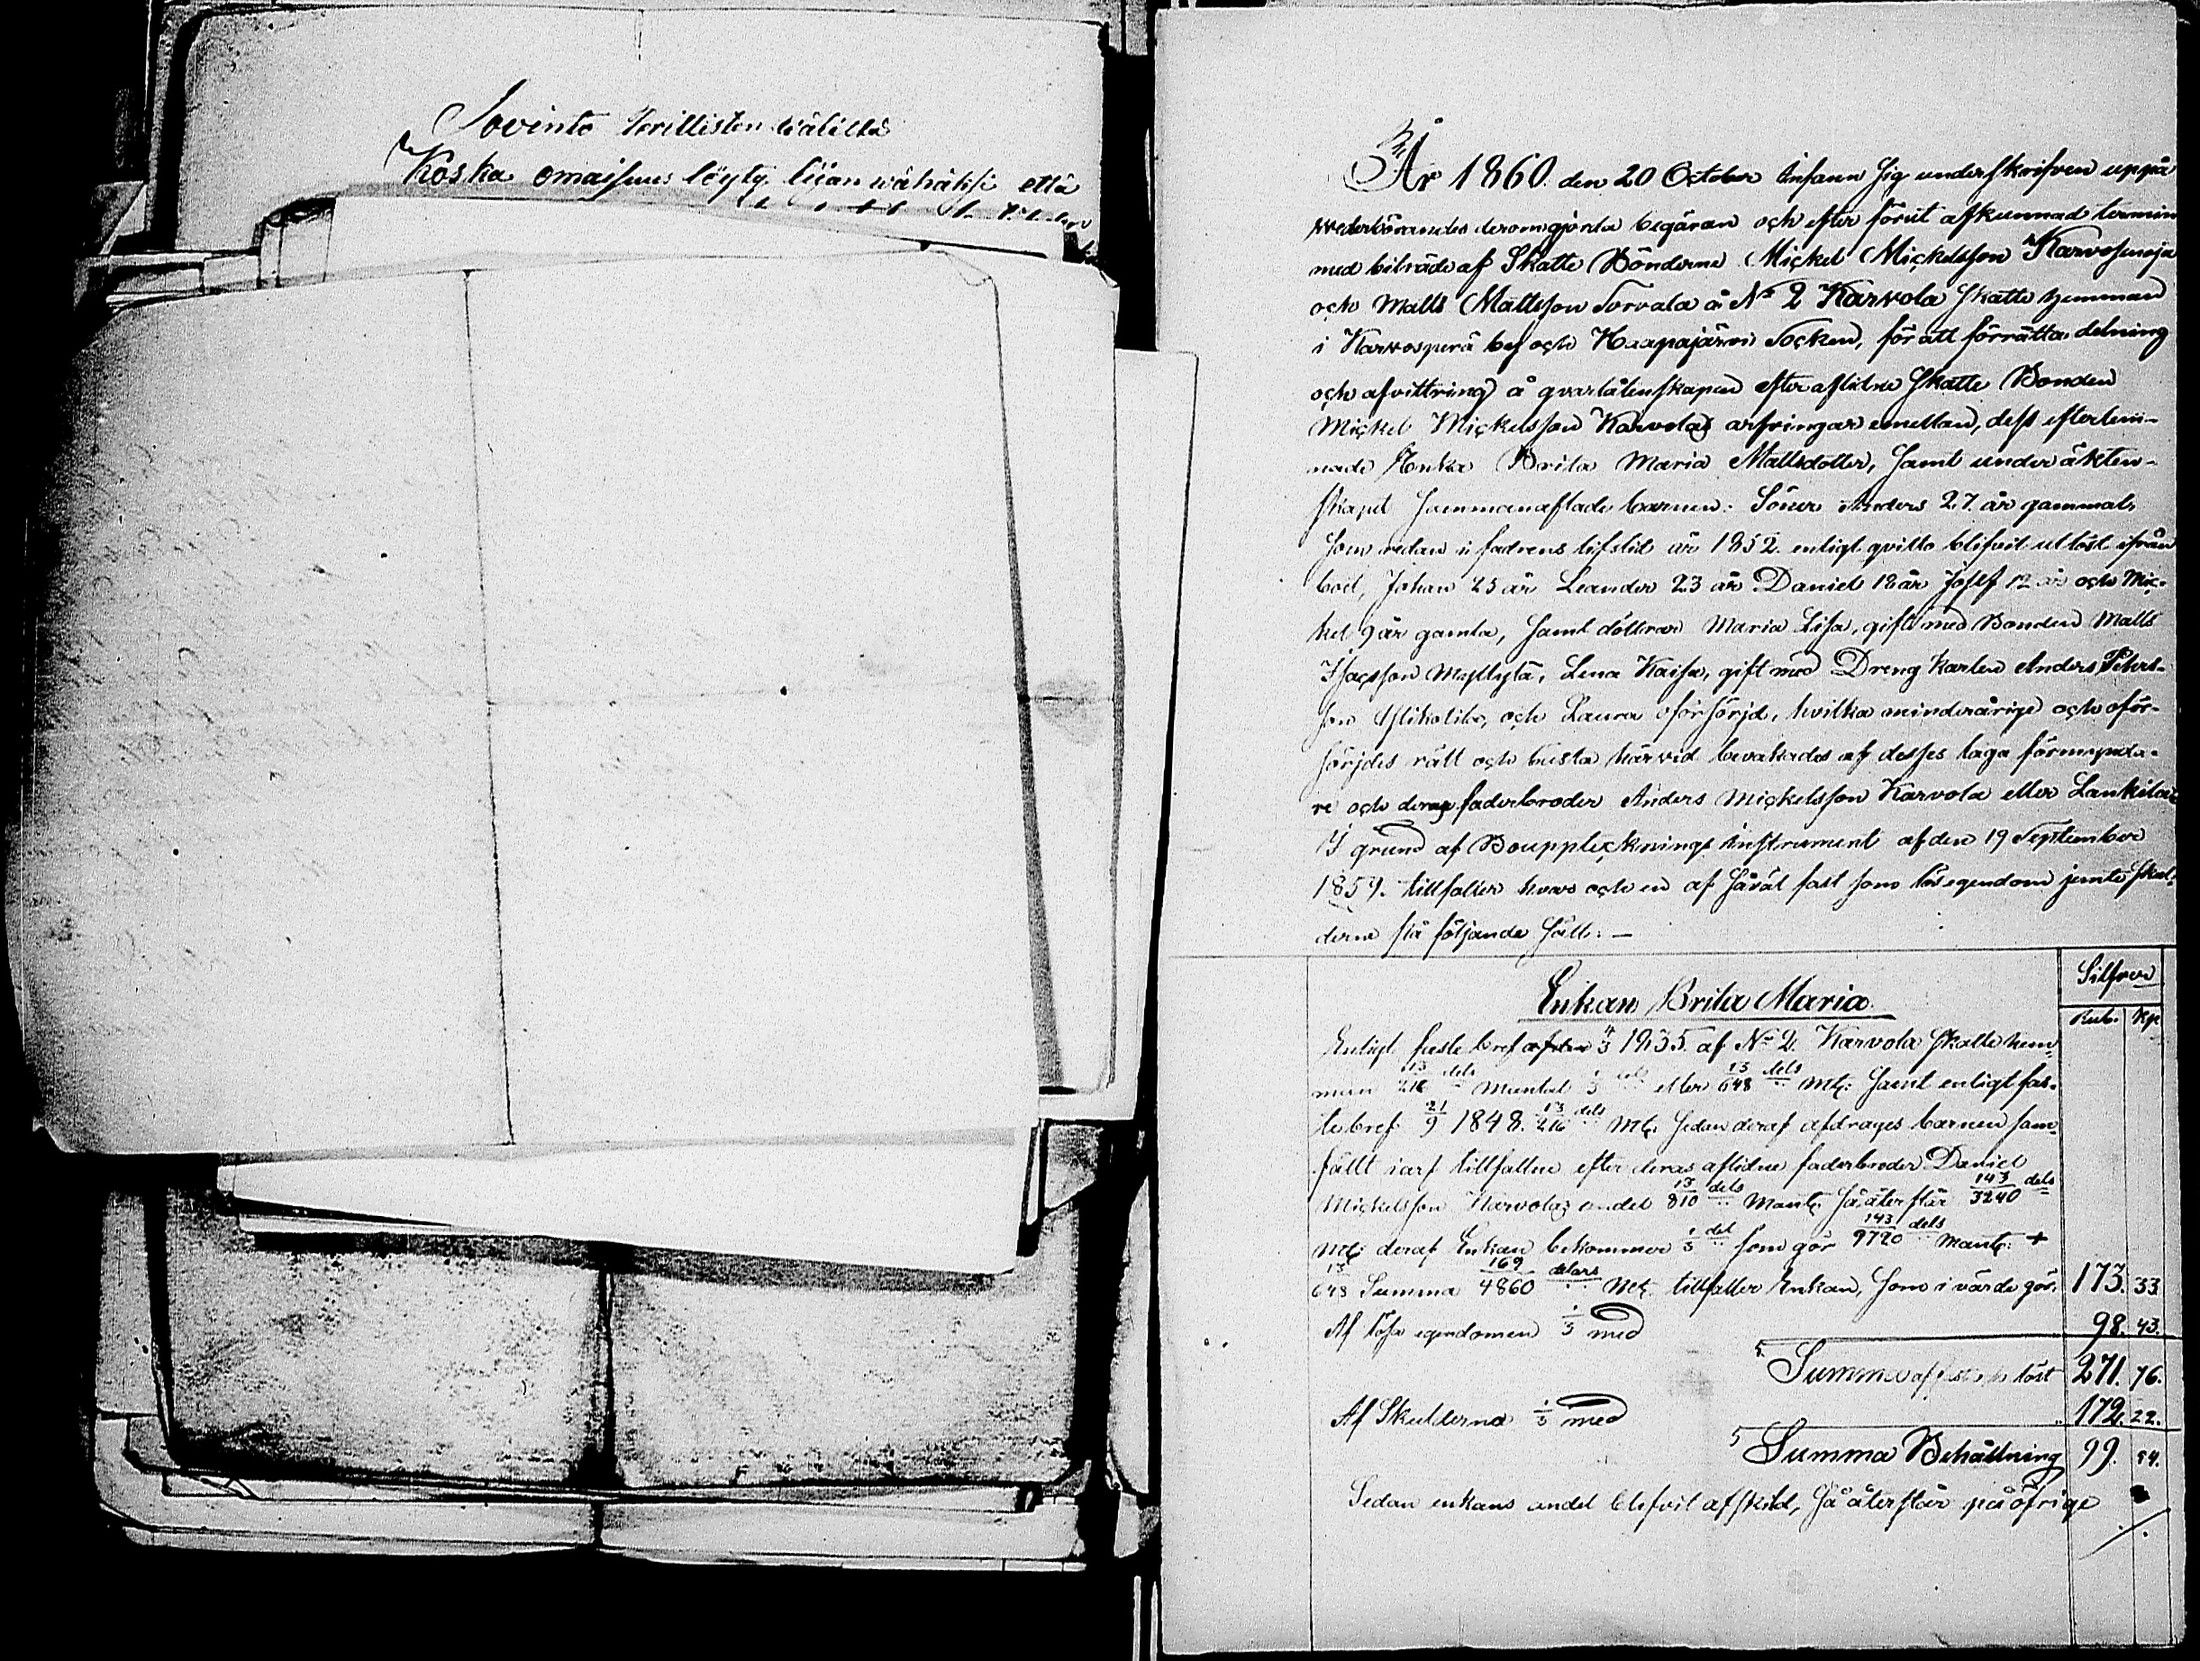 Sovinto Perillisten wälillä
Koska omaisuus löyty liian wähäksi että
År 1860 den 20 October infann sig underskrifven uppå
wederbörandes derom gjorda begäran och efter förut afkunnad termin
med biträde af Skatte Bönderne Mickel Mickelsson Karvosenoja
och Matts Mattsson Torvala å No 2 Karvola skatte hemman
i Karvosperä by och Haapajärvi Socken, för att förrätta delning
och afvittring å qvarlåtenskapen efter aflidne Skatte Bonden
Mickel Mickelsson Karvolas arfvingar emellan, dess efterlem-
nade Enka Brita Maria Mattsdotter, samt under äkten-
skapet sammanaflade barnen: Söner Anders 27 år gammal,
som redan i fadrens lifstid år 1852 enligt qvitto blifvit utlöst ifrån
boet, Johan 25 år Leander 23 år Daniel 18 år Josef 12 år och Mic-
kel 9 år gamla, samt döttrar Maria Lisa, gift med Bonden Matts
Isacsson Myllylä, Lena Kaisa, gift med Dreng Karlen Anders Pehrs-
son Ylikotila, och Laura oförsörjd, hvilka minderårige och oför-
sörjdes rätt och bästa härvid bevakades af desses laga förmynda-
re och deras faderbroder Anders Mickelsson Karvola eller Lankila
I grund af Bouppteckningsinstrument af den 19 September
1859. tillfaller hvar och en af såväl fast som lösegendom jemte skul-
derne på följande sätt: —
Silfver
Enkan Brita Maria
Rub. Kp
Enligt fastebref af den 4/3 1835 af No 2 Karvola skatte hem-
man 13/216 dels Mantal 1/3 del eller 13/648 dels Mtl: samt enligt fas-
tebref 21/9 1848. 13/216 dels Mtl. sedan deraf afdrages barnen sam-
fält i arf tillfallne efter deras aflidne faderbroder Daniel
Mickelsson Karvolas andel 13/810 dels Mantl: så återstår 143/3240 dels
Mtl: deraf Enkan bekommer 1/3 del som gör 143/9720 dels Mantl: +
13/648 Summa 169/4860 delars Mtl. tillfaller Enkan, som i värde gör. 173. 33.
Af lösa egendomen 1/3 med 98. 43.
Summa af fast och löst 271. 76.
Af Skulderna 1/3 med 172. 22.
Summa Behållning 99. 54.
Sedan enkans andel blifvit afskild, så återstår på öfrige